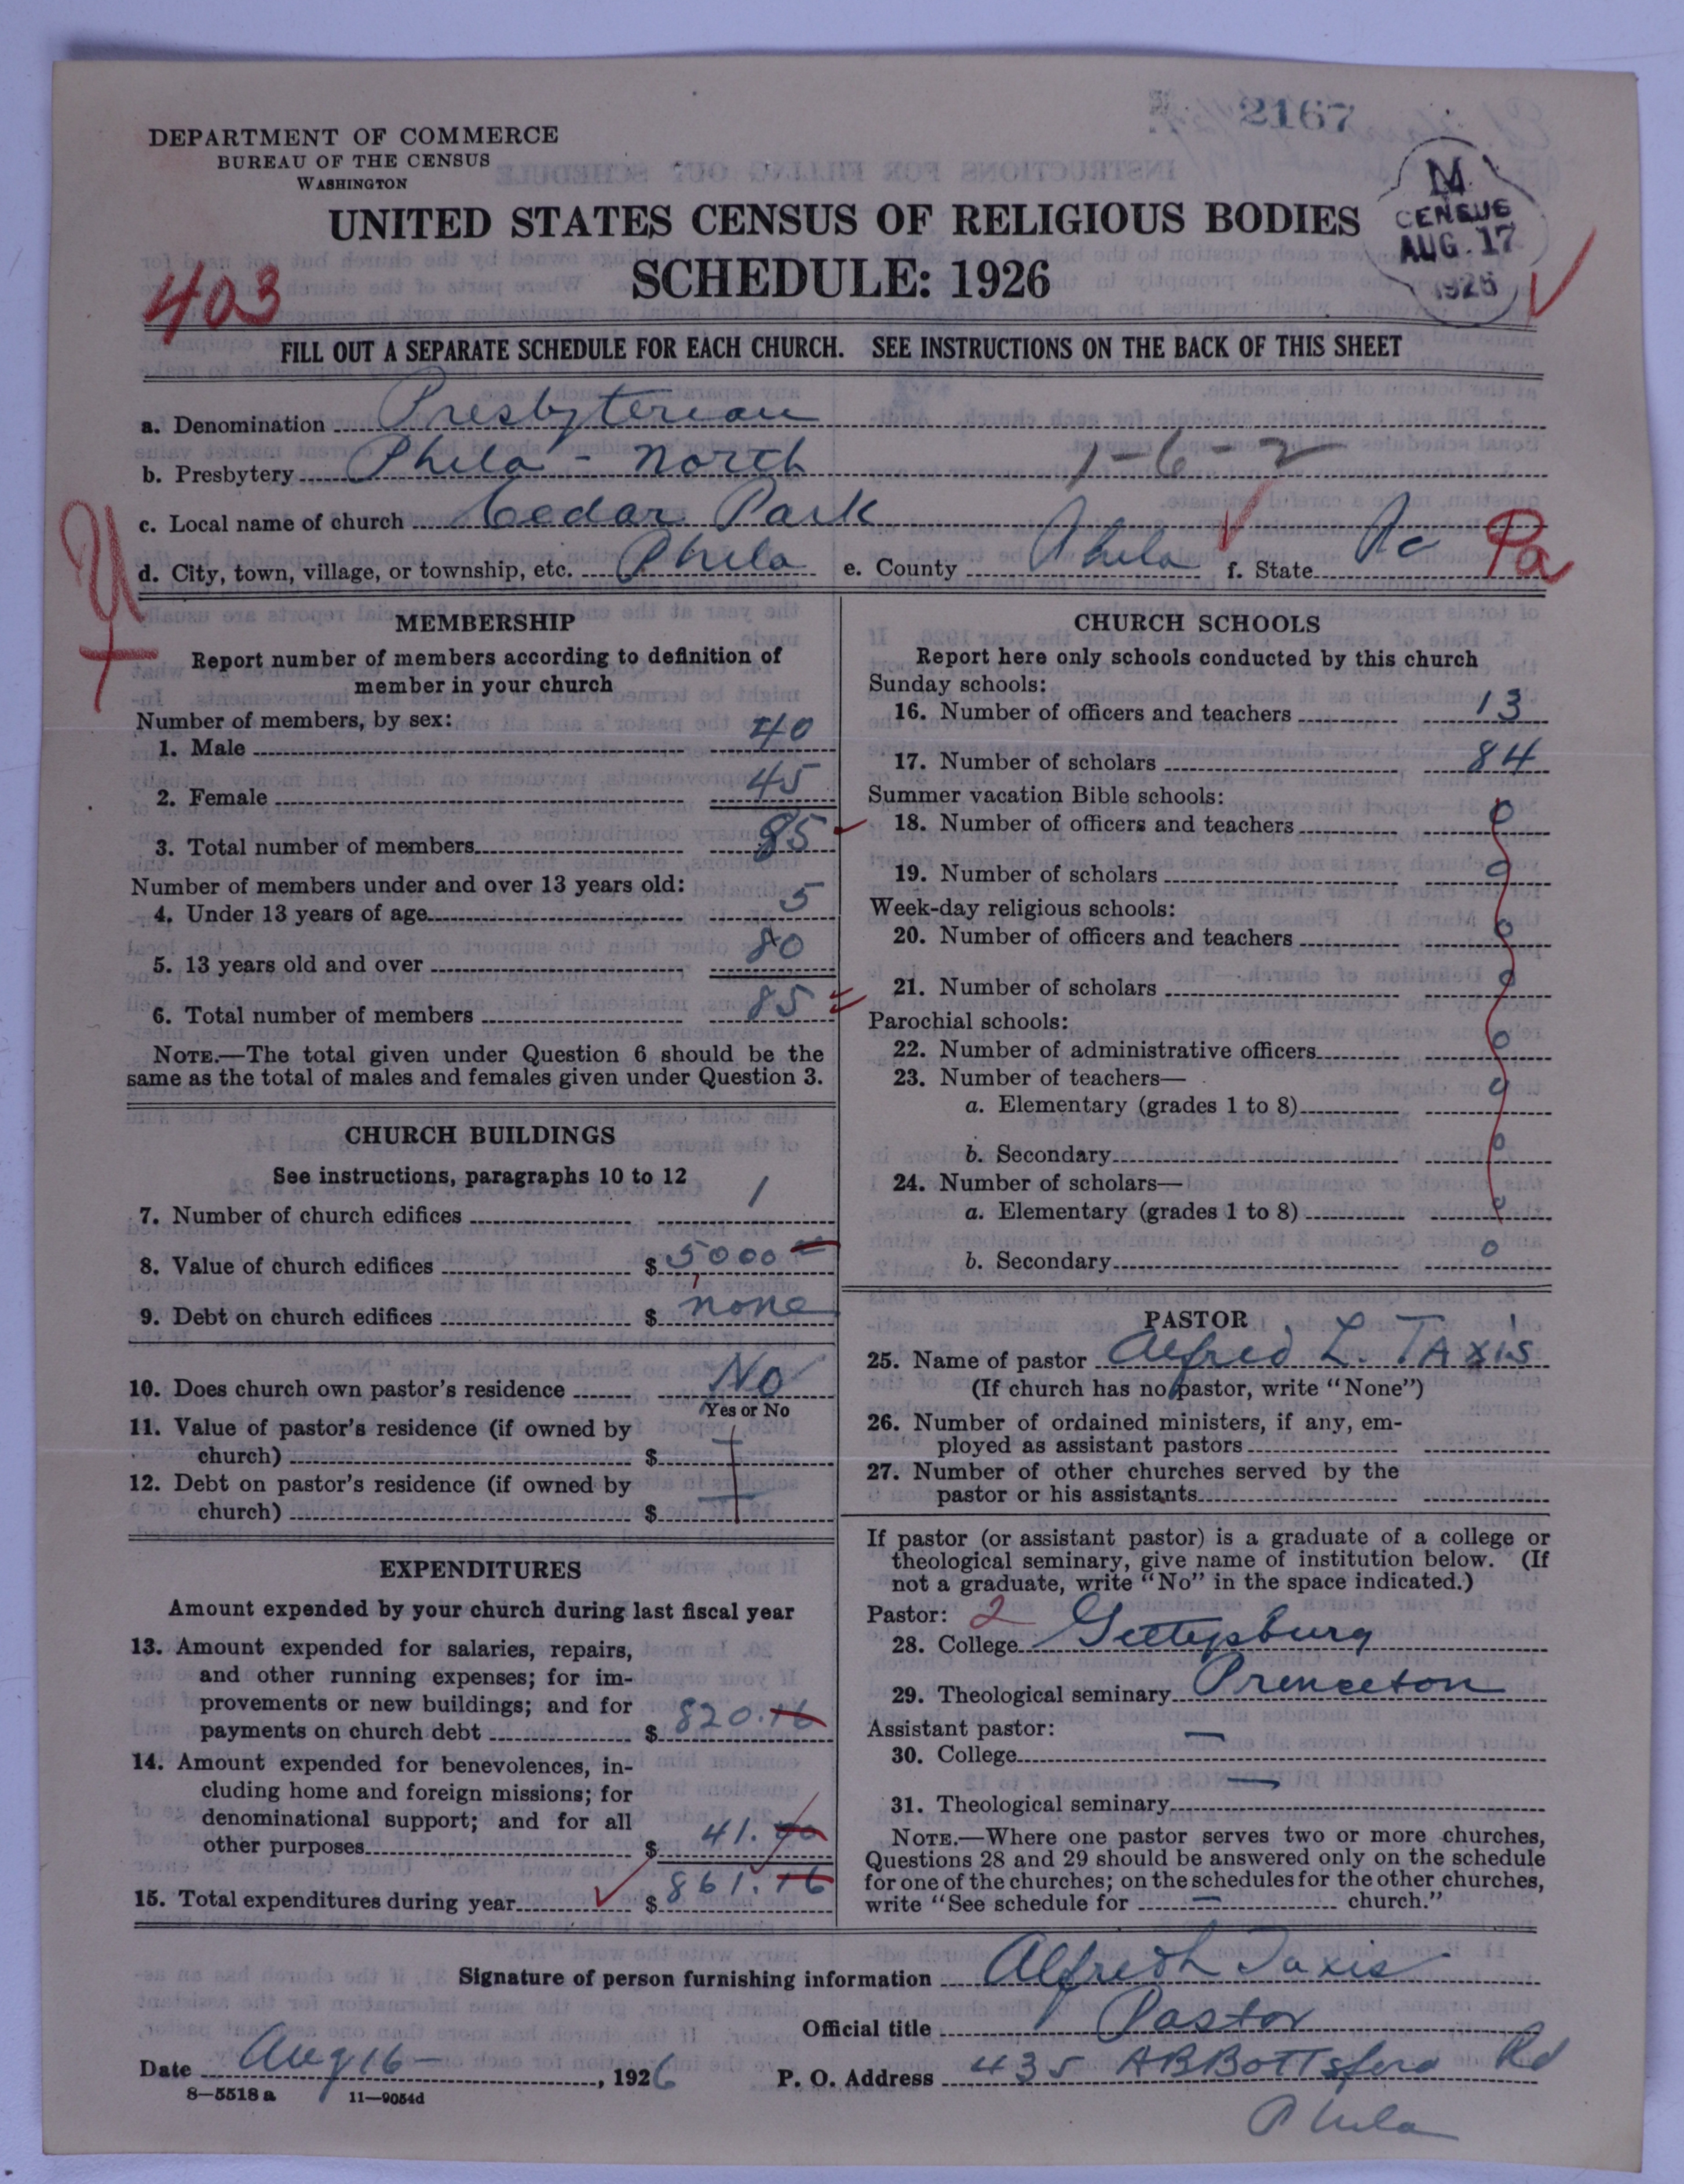 2167
DEPARTMENT OF COMMERCE
BUREAU OF THE CENSUS
WASHINGTON
M
CENSUS
AUG. 17
1926
UNITED STATES CENSUS OF RELIGIOUS BODIES
SCHEDULE: 1926
403
FILL OUT A SEPARATE SCHEDULE FOR EACH CHURCH. SEE INSTRUCTIONS ON THE BACK OF THIS SHEET
a. Denomination Presbyterian
b. Presbytery Phila - North 1-6-2
c. Local name of church Cedar Park
d. City, town, village, or township, etc. Phila e. County Phila f. State Pa Pa
MEMBERSHIP
Report number of members according to definition of
member in your church
Number of members, by sex:
1. Male 40
2. Female 45
3. Total number of members 85
Number of members under and over 13 years old:
4. Under 13 years of age 5
5. 13 years old and over 80
6. Total number of members 85
NOTE.—The total given under Question 6 should be the
same as the total of males and females given under Question 3.
CHURCH BUILDINGS
See instructions, paragraphs 10 to 12
7. Number of church edifices 1
8. Value of church edifices $ 5000
9. Debt on church edifices $ none
10. Does church own pastor's residence No
Yes or No
11. Value of pastor's residence (if owned by
church) $
12. Debt on pastor's residence (if owned by
church) $
EXPENDITURES
Amount expended by your church during last fiscal year
13. Amount expended for salaries, repairs,
and other running expenses; for im-
provements or new buildings; and for
payments on church debt $ 820.16
14. Amount expended for benevolences, in-
cluding home and foreign missions; for
denominational support; and for all
other purposes $ 41.00
15. Total expenditures during year $ 861.16
CHURCH SCHOOLS
Report here only schools conducted by this church
Sunday schools:
16. Number of officers and teachers 13
17. Number of scholars 84
Summer vacation Bible schools:
18. Number of officers and teachers 0
19. Number of scholars 0
Week-day religious schools:
20. Number of officers and teachers 0
21. Number of scholars 0
Parochial schools:
22. Number of administrative officers 0
23. Number of teachers—
a. Elementary (grades 1 to 8) 0
b. Secondary 0
24. Number of scholars—
a. Elementary (grades 1 to 8) 0
b. Secondary 0
PASTOR
25. Name of pastor Alfred L. TAxis
(If church has no pastor, write "None")
26. Number of ordained ministers, if any, em-
ployed as assistant pastors
27. Number of other churches served by the
pastor or his assistants
If pastor (or assistant pastor) is a graduate of a college or
theological seminary, give name of institution below. (If
not a graduate, write "No" in the space indicated.)
Pastor: 2
28. College Gettysburg
29. Theological seminary Princeton
Assistant pastor:
30. College —
31. Theological seminary —
NOTE.—Where one pastor serves two or more churches,
Questions 28 and 29 should be answered only on the schedule
for one of the churches; on the schedules for the other churches,
write "See schedule for — church."
Signature of person furnishing information Alfred L Taxis
Official title Pastor
Date Aug 16 —, 1926 P. O. Address 435 ABBOTTsford Rd
8—5518 a 11—9054d
Phila